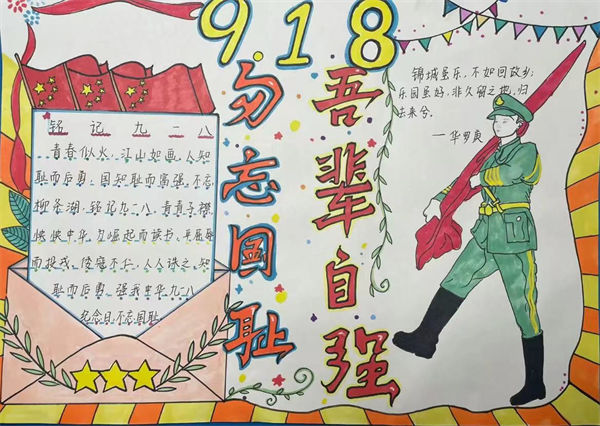 9.18
勿忘国耻
吾辈自强
铭记九一八
青春似火，江山如画，人知
耻而后勇，国知耻而富强，不忘
柳条湖，铭记九一八，青青子襟
泱泱中华，为崛起而读书，
而投戎，倭寇不仁，人人诛之，知
耻而后勇，强我中华九一八
纪念日不忘国耻
锦城虽乐，不如回故乡；
乐园虽好，非久留之地，归
去来兮。
—华罗庚